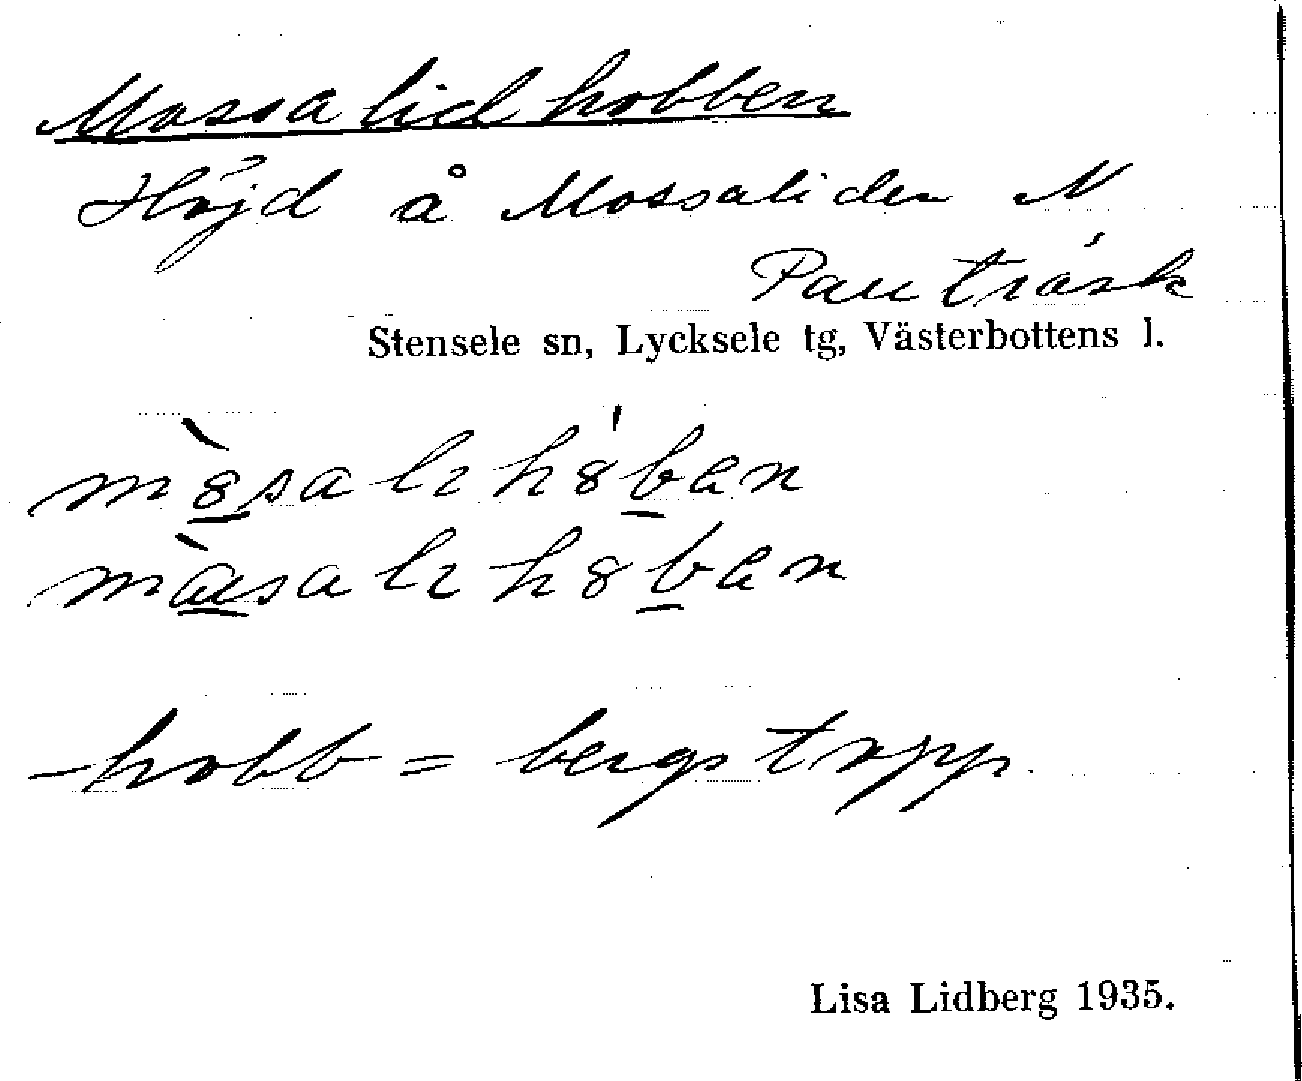 Mossalidhobben
Höjd å Mossaliden N
Pauträsk
Stensele sn, Lycksele tg, Västerbottens l.
-hobb = bergstopp
Lisa Lidberg 1935.